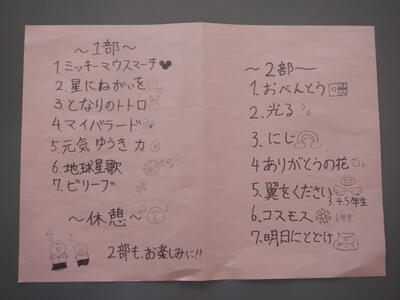 ～1部～
1.ミッキーマウスマーチ
2.星にねがいを
3.となりのトトロ
4.マイバラード
5.元気 ゆうき 力
6.地球星歌
7.ビリーブ
～休憩～
2部も、お楽しみに!!
～2部～
1.おべんとう
2.光る
3.にじ
4ありがとうの花
5.翼をください
3.4.5年生
6.コスモス
6年生
7.明日にとどけ